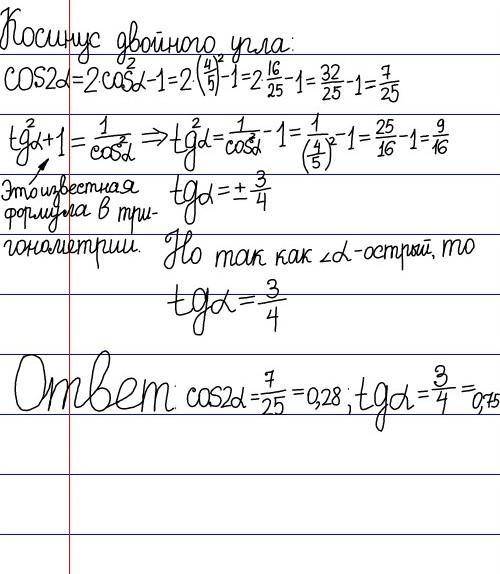 Косинус двойного угла:
cos2α=2·cos²α-1=2·(4/5)²-1=2·16/25-1=32/25-1=7/25
tg²α+1=1/cos²α⇒tg²α=1/cos²α-1=1/(4/5)²-1=25/16-1=9/16
Это известная
формула в три-
гонометрии.
tgα=±3/4
Но так как ∠α-острый, то
tgα=3/4
Ответ: cos2α=7/25=0,28; tgα=3/4=0,75